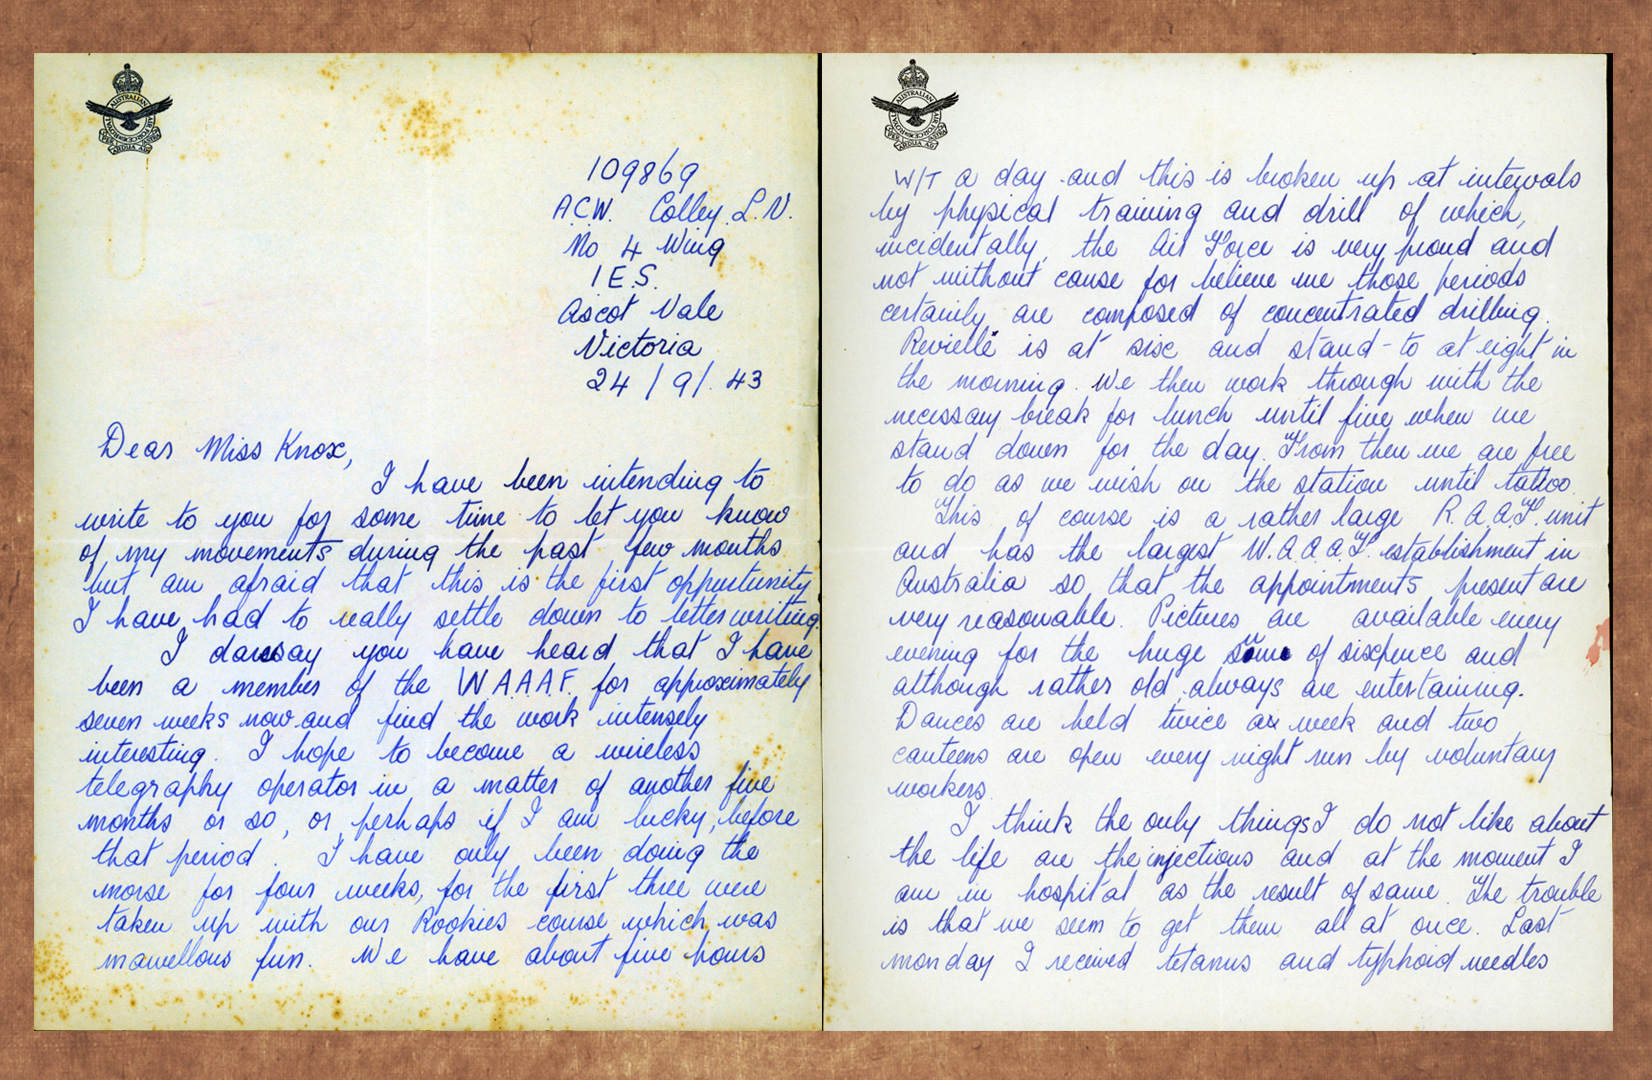 109869
A.C.W. Colley. L. N.
No 4 Wing
1 E.S.
Ascot Vale
Victoria
24/9/.43
Dear Miss Knox,
I have been intending to
write to you for some time to let you know
of my movements during the past few months
but am afraid that this is the first oppurtunity
I have had to really settle down to letter writing.
I daresay you have heard that I have
been a member of the W.A.A.A.F. for approximately
seven weeks now and find the work intensely
interesting. I hope to become a wireless
telegraphy operator in a matter of another five
months or so, or perhaps if I am lucky, before
that period. I have only been doing the
morse for four weeks, for the first three were
taken up with our Rookies course which was
marvellous fun. We have about five hours
AUSTRALIAN
W/T a day and this is broken up at intervals
by physical training and drill of which,
incidentally, the Air Force is very proud and
not without cause for believe me those periods
certainly are composed of concentrated drilling.
Revielle is at six and stand-to at eight in
the morning. We then work through with the
necessary break for lunch until five when we
stand down for the day. From then we are free
to do as we wish on the station until tattoo.
This of course is a rather large R.A.A.F. unit
and has the largest W.A.A.A.F. establishment in
Australia so that the appointments present are
very reasonable. Pictures are available every
evening for the huge sum of sixpence and
although rather old always are entertaining.
Dances are held twice a week and two
canteens are open every night run by voluntary
workers.
I think the only things I do not like about
the life are the injections and at the moment I
am in hospital as the result of same. The trouble
is that we seem to get them all at once. Last
monday I received tetanus and typhoid needles